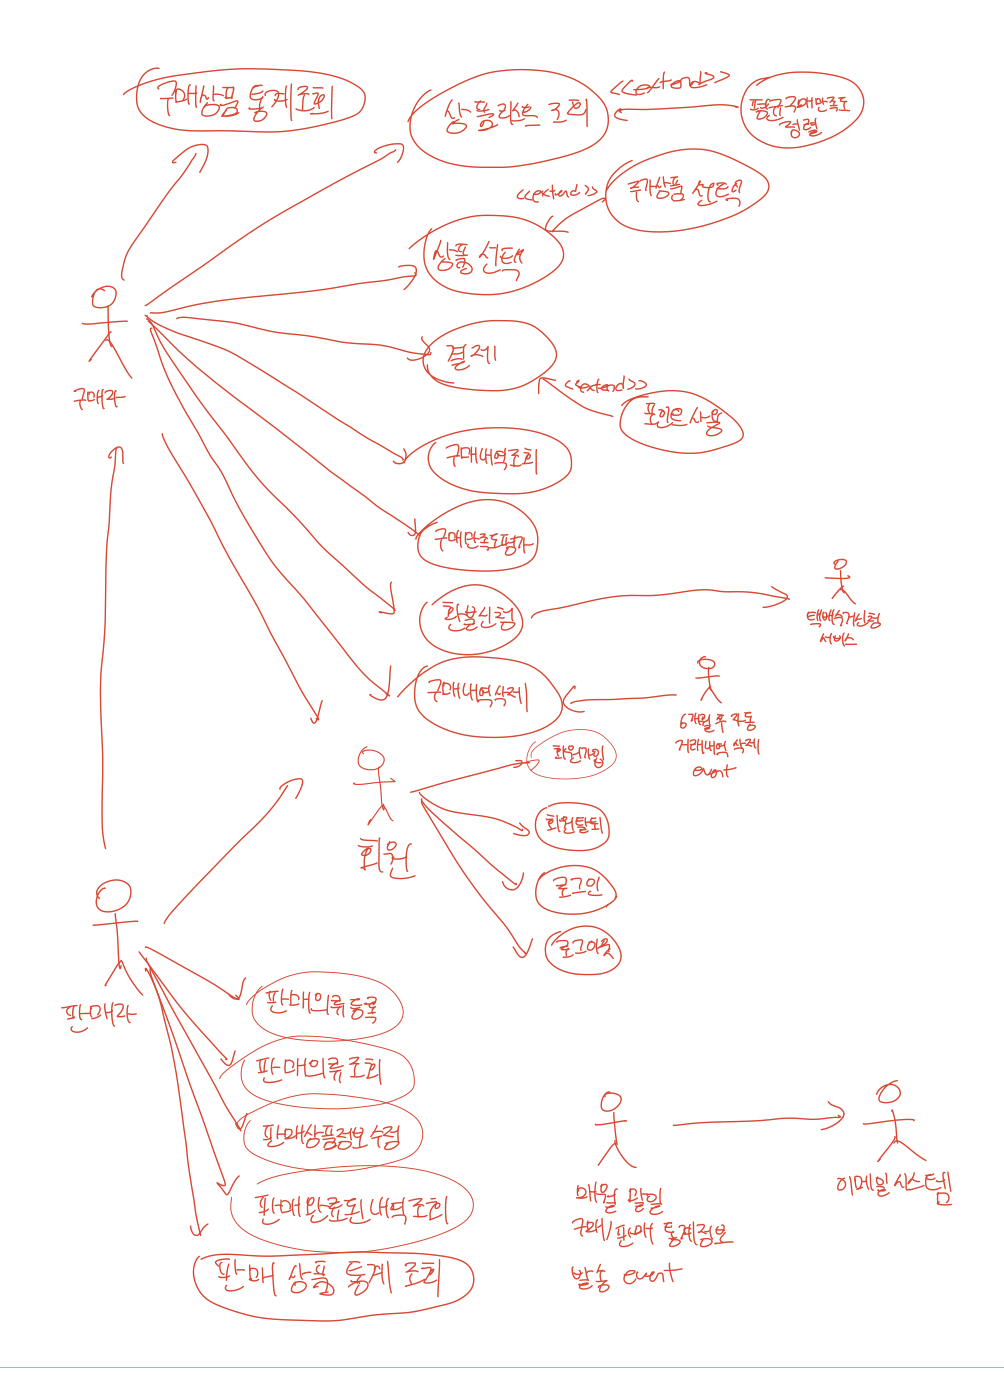 구매상품 통계조회
상품리스트 조회
<<extend>>
평균구매만족도
정렬
<<extend>>
추가상품 선택
상품 선택
구매자
결제
<<extend>>
포인트 사용
구매내역조회
구매만족도평가
환불신청
택배수거신청
서비스
구매내역삭제
6개월 후 자동
거래내역 삭제
event
회원
회원가입
회원탈퇴
로그인
로그아웃
판매자
판매의류 등록
판매의류 조회
판매상품정보 수정
판매 완료된 내역 조회
판매 상품 통계 조회
매월 말일
구매/판매 통계정보
발송 event
이메일 시스템